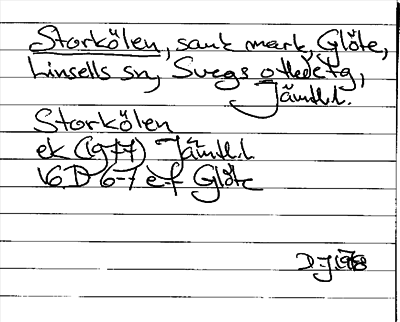 Storkölen, sank mark, Glöte,
Linsells sn, Svegs o Hede tg,
Jämtl.l.
Storkölen
ek (1977) Jämtl.l
16D 6-7 e-f Glöte
DJ 1978